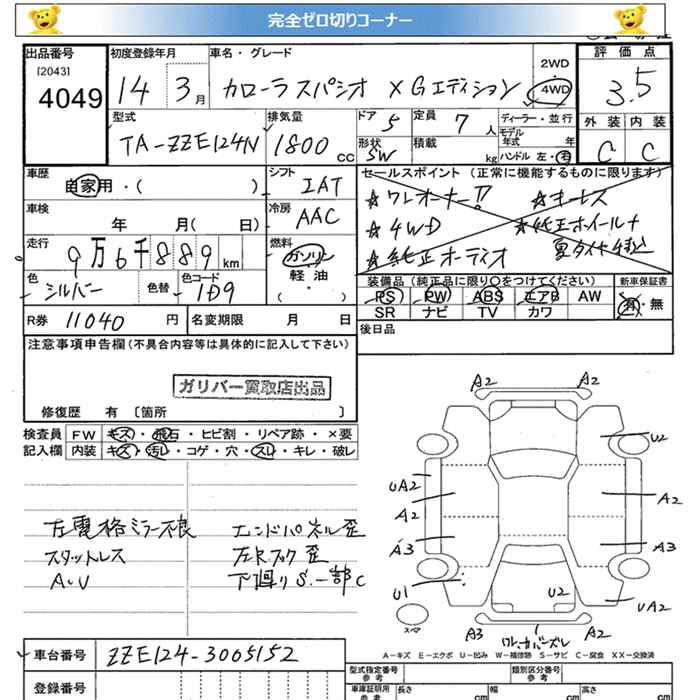 完全ゼロ切りコーナー
出品番号 [2043] 4049
初度登録年月 14 3月
車名・グレード カローラスパシオ XGエディション
2WD
4WD
評価点 3.5
型式 TA-ZZE124N
排気量 1800 cc
ドア 5
定員 7人
ディーラー・並行
モデル年式 年
ハンドル 左・右
形状 SW
積載 kg
外装 内装
C C
車歴 自家用・( )
シフト IAT
車検 年 月( 日)
冷房 AAC
走行 9万6千889km
燃料 ガソリン
軽油
( ・ )
色 シルバー
色替
色コード 1D9
R券 11040円
名変期限 月 日
セールスポイント (正常に機能するものに限ります)
☆ワンオーナー!!
☆キーレス
☆4WD
☆純正ホイール+
夏タイヤ4本込
☆純正オーディオ
装備品 (純正品に限り○をつけてください)
新車保証書
PS PW ABS エアB AW
SR ナビ TV カワ
有・無
後日品
注意事項申告欄 (不具合内容等は具体的に記入して下さい)
ガリバー買取店出品
修復歴 有 [箇所 ]
検査員 FW キズ・飛石・ヒビ割・リペア跡・×要
記入欄 内装 キズ・汚レ・コゲ・穴・スレ・キレ・破レ
左電格ミラー不良
スタットレス
A.U
エンドパネル歪
左Rフック歪
下廻りS.一部C
A2 A2
U2
UA2
A2 A2
A3 A3
U1 U2 UA2
スペア
A3 A2
A-キズ E-エクボ U-凹み W-補修跡 S-サビ C-腐食 XX-交換済
車台番号 ZZE124-3065152
登録番号
型式指定番号 参考
類別区分番号 参考
車庫証明用 参考
長さ cm 幅 cm 高さ cm